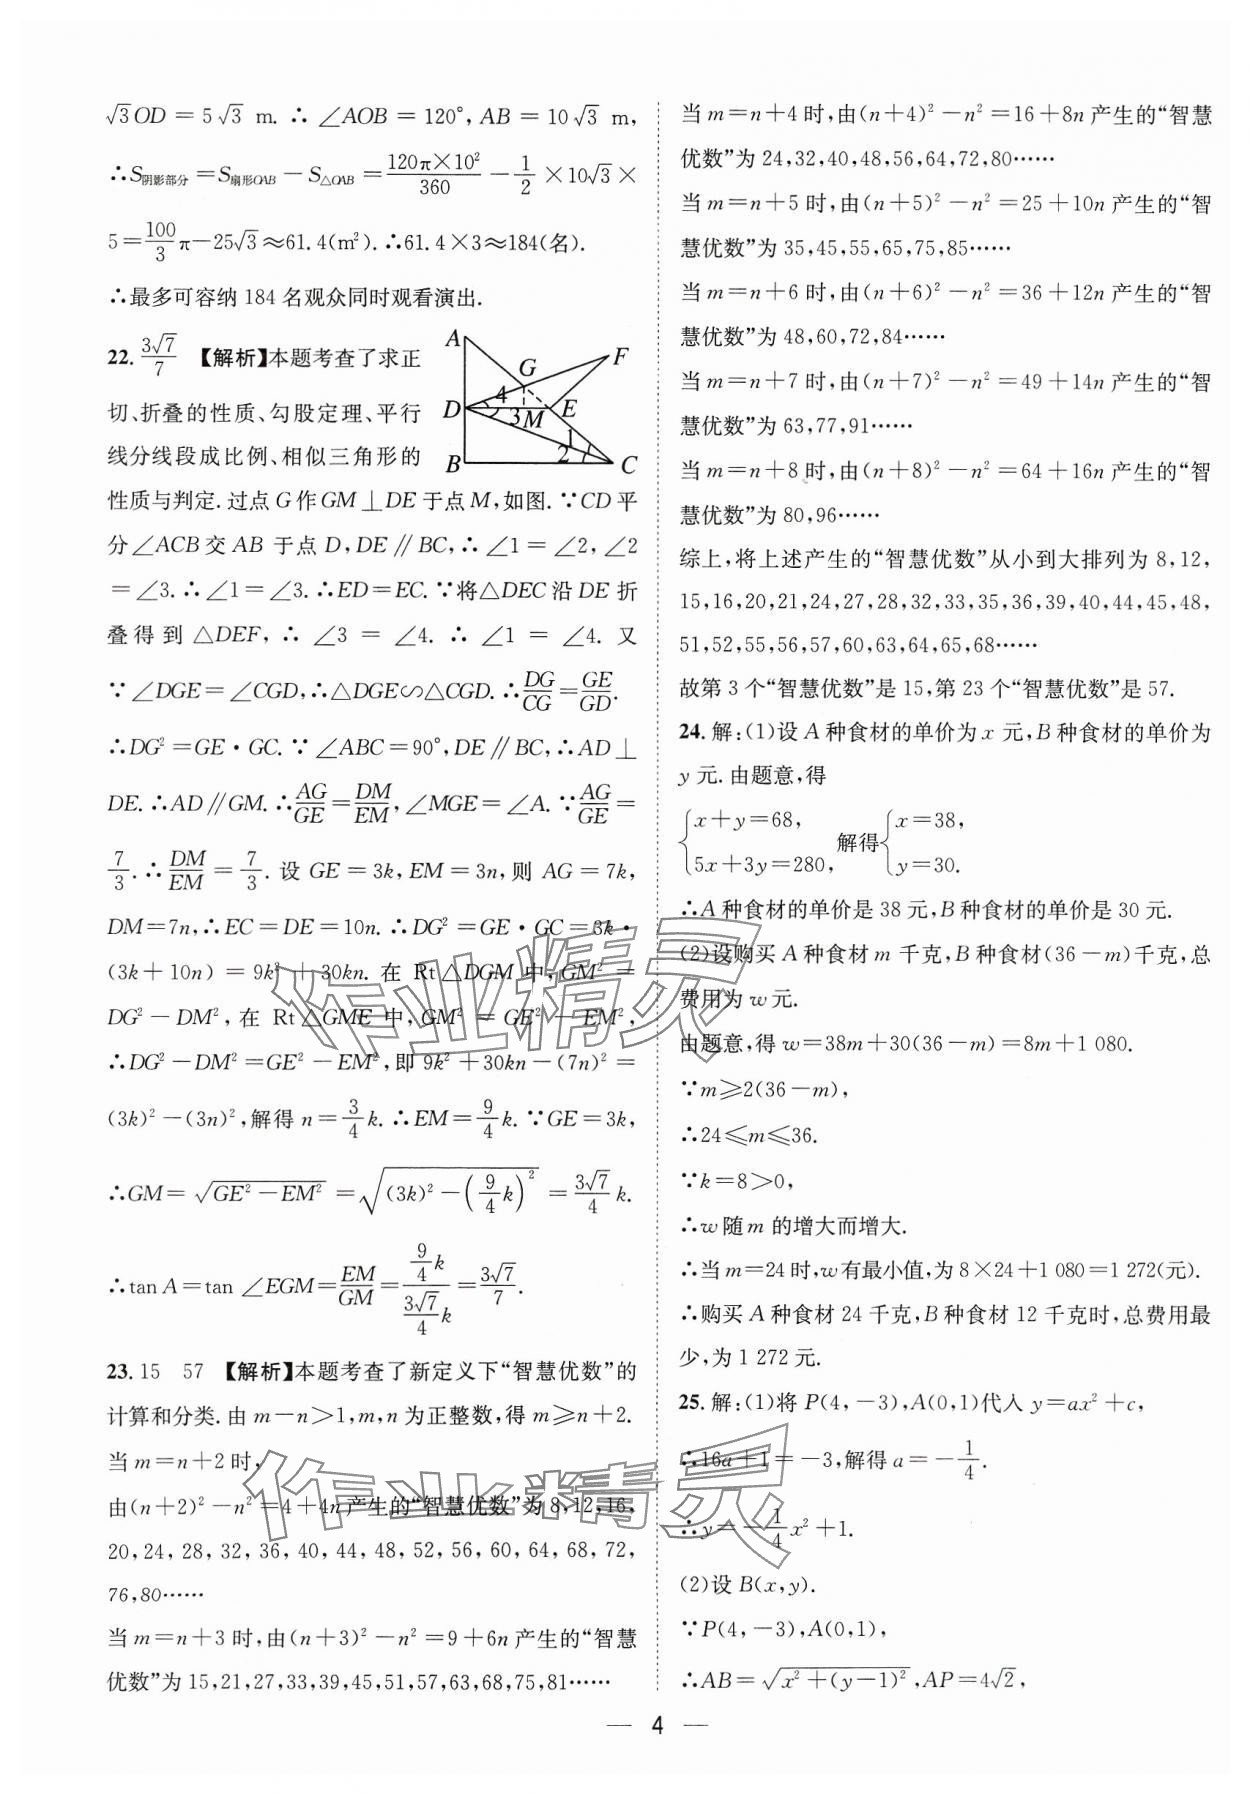 √3OD=5√3 m.∴∠AOB=120°,AB=10√3 m,
∴S阴影部分=S扇形OAB-S△OAB=120π×10²/360-1/2×10√3×
5=100/3π-25√3≈61.4(m²).∴61.4×3≈184(名).
∴最多可容纳184名观众同时观看演出.
22. 3√7/7 【解析】本题考查了求正
切、折叠的性质、勾股定理、平行
线分线段成比例、相似三角形的
A
G
F
4
D
2
3
M
E
1
2
B
C
性质与判定.过点G作GM⊥DE于点M,如图.∵CD平
分∠ACB交AB于点D,DE∥BC,∴∠1=∠2,∠2
=∠3.∴∠1=∠3.∴ED=EC.∵将△DEC沿DE折
叠得到△DEF,∴∠3=∠4.∴∠1=∠4.又
∵∠DGE=∠CGD,∴△DGE∽△CGD.∴DG/CG=GE/GD.
∴DG²=GE·GC.∵∠ABC=90°,DE∥BC,∴AD⊥
DE.∴AD∥GM.∴AG/GE=DM/EM,∠MGE=∠A.∵AG/GE=
7/3.∴DM/EM=7/3.设GE=3k,EM=3n,则AG=7k,
DM=7n,∴EC=DE=10n.∴DG²=GE·GC=3k·
(3k+10n)=9k²+30kn.在Rt△DGM中,GM²=
DG²-DM²,在Rt△GME中,GM²=GE²-EM²,
∴DG²-DM²=GE²-EM²,即9k²+30kn-(7n)²=
(3k)²-(3n)²,解得n=3/4k.∴EM=9/4k.∵GE=3k,
∴GM=√(GE²-EM²)=√((3k)²-(9/4k)²)=3√7/4k.
∴tan A=tan∠EGM=EM/GM=(9/4k)/(3√7/4k)=3√7/7.
23.15 57 【解析】本题考查了新定义下“智慧优数”的
计算和分类.由m-n>1,m,n为正整数,得m≥n+2.
当m=n+2时,
由(n+2)²-n²=4+4n产生的“智慧优数”为8,12,16,
20,24,28,32,36,40,44,48,52,56,60,64,68,72,
76,80……
当m=n+3时,由(n+3)²-n²=9+6n产生的“智慧
优数”为15,21,27,33,39,45,51,57,63,68,75,81……
当m=n+4时,由(n+4)²-n²=16+8n产生的“智慧
优数”为24,32,40,48,56,64,72,80……
当m=n+5时,由(n+5)²-n²=25+10n产生的“智
慧优数”为35,45,55,65,75,85……
当m=n+6时,由(n+6)²-n²=36+12n产生的“智
慧优数”为48,60,72,84……
当m=n+7时,由(n+7)²-n²=49+14n产生的“智
慧优数”为63,77,91……
当m=n+8时,由(n+8)²-n²=64+16n产生的“智
慧优数”为80,96……
综上,将上述产生的“智慧优数”从小到大排列为8,12,
15,16,20,21,24,27,28,32,33,35,36,39,40,44,45,48,
51,52,55,56,57,60,63,64,65,68……
故第3个“智慧优数”是15,第23个“智慧优数”是57.
24.解:(1)设A种食材的单价为x元,B种食材的单价为
y元.由题意,得
{x+y=68, 5x+3y=280, 解得{x=38, y=30.
∴A种食材的单价是38元,B种食材的单价是30元.
(2)设购买A种食材m千克,B种食材(36-m)千克,总
费用为w元.
由题意,得w=38m+30(36-m)=8m+1 080.
∵m≥2(36-m),
∴24≤m≤36.
∵k=8>0,
∴w随m的增大而增大.
∴当m=24时,w有最小值,为8×24+1 080=1 272(元).
∴购买A种食材24千克,B种食材12千克时,总费用最
少,为1 272元.
25.解:(1)将P(4,-3),A(0,1)代入y=ax²+c,
∴16a+1=-3,解得a=-1/4.
∴y=-1/4x²+1.
(2)设B(x,y).
∵P(4,-3),A(0,1),
∴AB=√(x²+(y-1)²),AP=4√2,
— 4 —
作业精灵
作业精灵